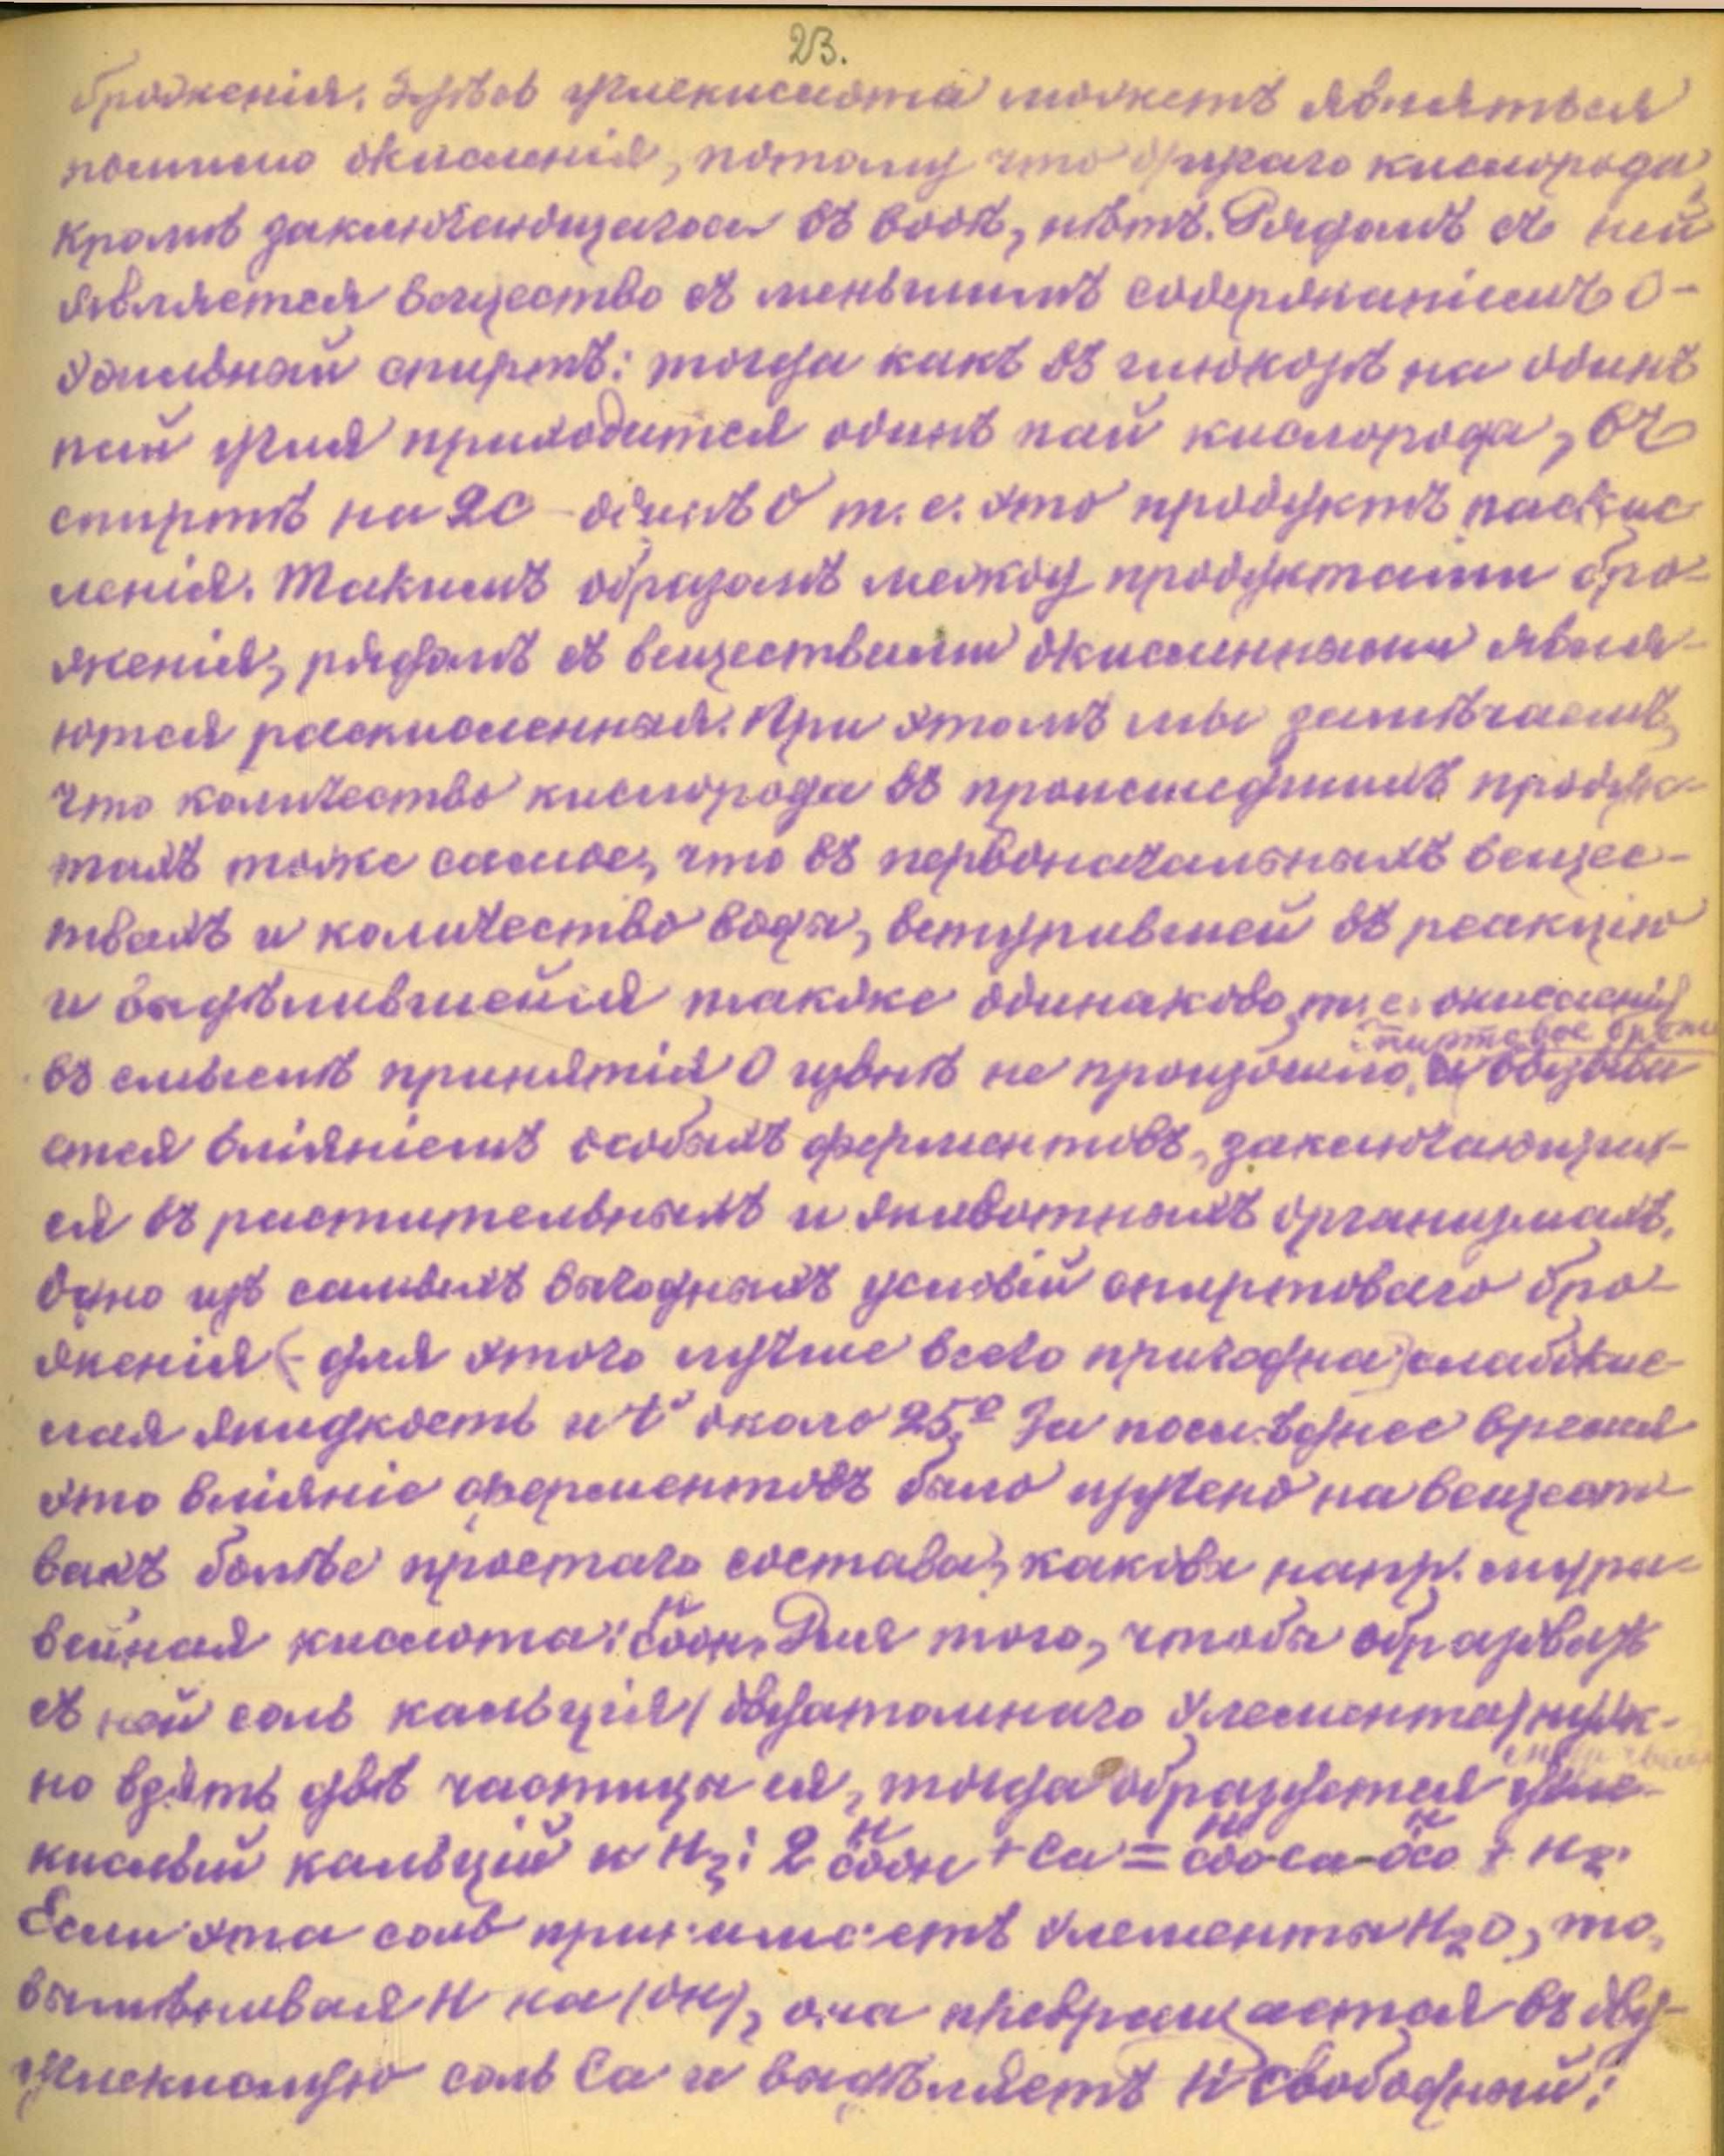 23.
броженія. Здѣсь углекислота можетъ являться
помимо окисленія, потому что другаго кислорода,
кромѣ заключающагося въ водѣ, нѣтъ. Рядомъ съ ней
является вещество съ меньшимъ содержаніемъ О-
этильный спиртъ: тогда какъ въ глюкозѣ на одинъ
пай угля приходится одинъ пай кислорода, въ
спиртѣ на 2С - одинъ О т. е. это продуктъ раскис
ленія. Такимъ образомъ между продуктами бро-
женія, рядомъ съ веществами окисленными явля-
ются раскисленныя. При этомъ мы замѣчаемъ,
что количество кислорода въ происшедшихъ продук-
тахъ тоже самое, что въ первоначальныхъ вещес-
твахъ и количество воды, вступившей въ реакцію
и выдѣлившейся также одинаково, т. е. окисленія
спиртовое броже
въ смыслѣ принятія О извнѣ не произошло. вызыва
ется вліяніемъ особыхъ ферментовъ, заключающих-
ся въ растительныхъ и животныхъ организмахъ.
Одно изъ самыхъ выгодныхъ условій спиртоваго бро-
женія (- для этого лучше всего пригодна) слабокис-
лая жидкость и t° около 25°. За послѣднее время
это вліяніе ферментовъ было изучено на вещест
вахъ болѣе простаго состава, какова напр. мура-
вейная кислота: НСООН. Для того, чтобы образовать
съ ней соль кальція (двуатомнаго элемента) нуж-
но взять двѣ частицы ея, тогда образуется угле-
кислый кальцій и H2: 2 НСООН + Ca = НСОО-Ca-ОСОН + H2.
Если эта соль принимаетъ элементы H2O, то,
вымѣнивая Н на (ОН), она превращается въ дву-
углекислую соль Ca и выдѣляетъ Н свободный: